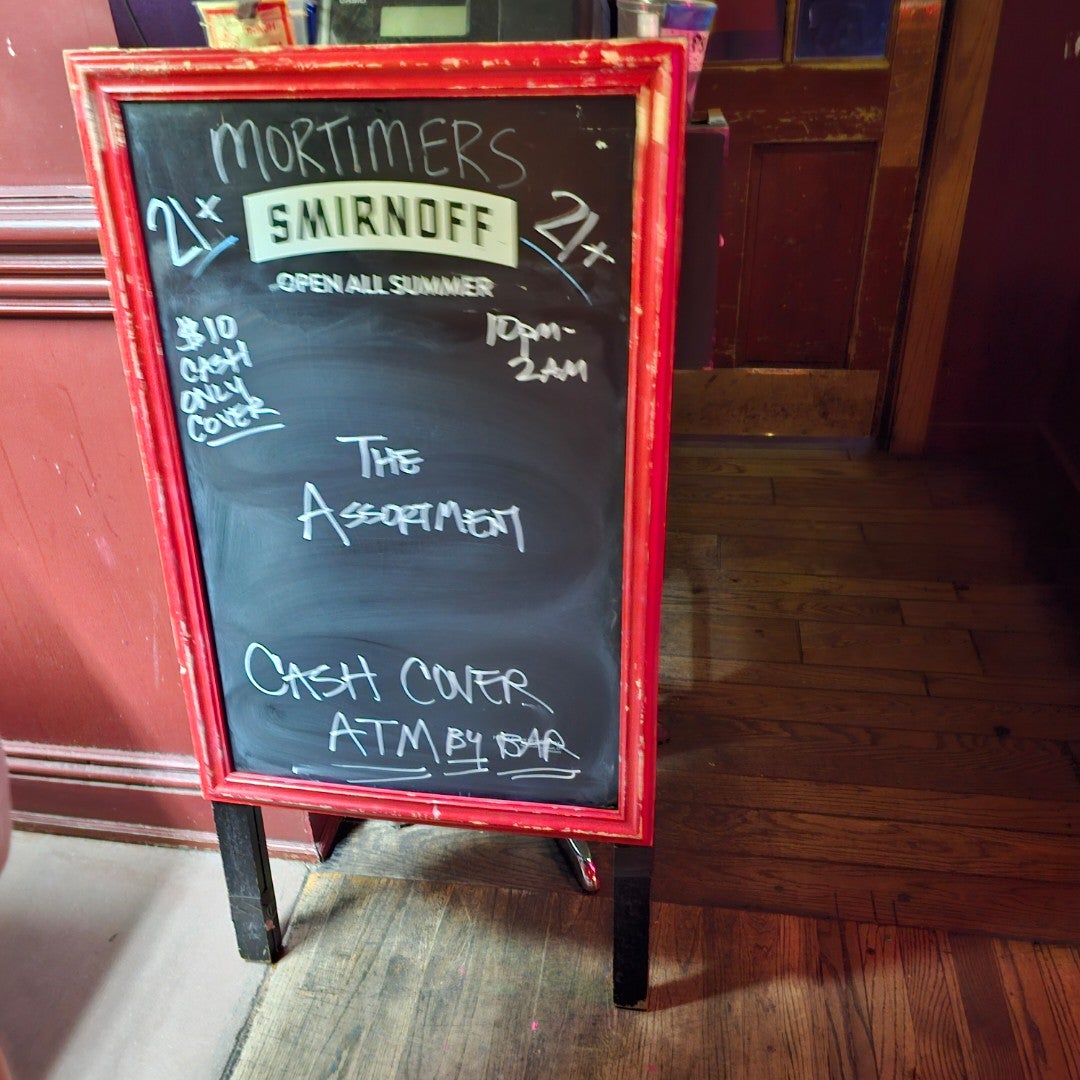 CASIO
MORTIMERS
21+
SMIRNOFF
21+
OPEN ALL SUMMER
$10
CASH
ONLY
COVER
10pm-
2AM
THE
ASSORTMENT
CASH COVER
ATM BY BAR